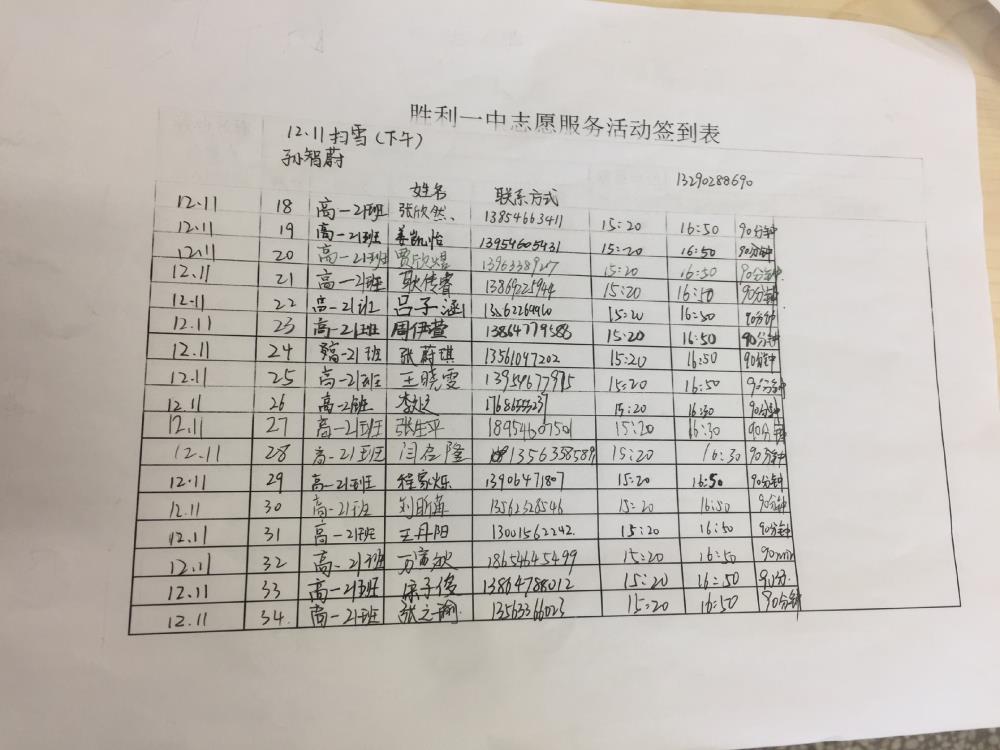 胜利一中志愿服务活动签到表
12.11扫雪(下午)
孙智蔚
13290288690
姓名 联系方式
12.11 18 高一21班 张欣然、 13854663411 15:20 16:50 90分钟
12.11 19 高一21班 姜凯怡 13954605431 15:20 16:50 90分钟
12.11 20 高一21班 贾欣煜 15:20 16:50 90分钟
12.11 21 高一21班 耿传睿 13869225944 15:20 16:50 90分钟
12.11 22 高一21班 吕子涵 15:20 16:50 90分钟
12.11 23 高一21班 周伊萱 13864779588 15:20 16:50 90分钟
12.11 24 高一21班 张蔚琪 13561047202 15:20 16:50 90分钟
12.11 25 高一21班 王晓雯 13954677915 15:20 16:50 90分钟
12.11 26 高一21班 15:20 16:30 90分钟
12.11 27 高一21班 张生平 18954607501 15:20 16:30 90分钟
12.11 28 高一21班 闫启隆 1356358589 15:20 16:30 90分钟
12.11 29 高一21班 程家烁 13906471807 15:20 16:50 90分钟
12.11 30 高一21班 刘昕苒 13562328546 15:20 16:50 90分钟
12.11 31 高一21班 王丹阳 13001562242. 15:20 16:50 90分钟
12.11 32 高一21班 18654645499 15:20 16:50 90min
12.11 33 高一21班 徐子俊 13864788012 15:20 16:50 90分.
12.11 34. 高一21班 张之瑜 13563366023 15:20 16:50 90分钟